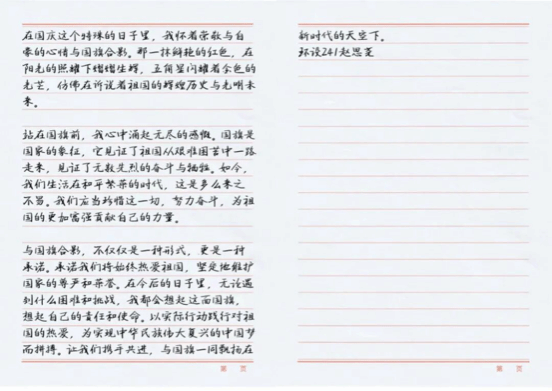 在国庆这个特殊的日子里，我怀着崇敬与自
豪的心情与国旗合影。那一抹鲜艳的红色，在
阳光的照耀下熠熠生辉，五角星闪耀着金色的
光芒，仿佛在诉说着祖国的辉煌历史与光明未
来。
站在国旗前，我心中涌起无尽的感慨。国旗是
国家的象征，它见证了祖国从艰难困苦中一路
走来，见证了无数先烈的奋斗与牺牲。如今，
我们生活在和平繁荣的时代，这是多么来之
不易。我们应当珍惜这一切，努力奋斗，为祖
国的更加富强贡献自己的力量。
与国旗合影，不仅仅是一种形式，更是一种
承诺。承诺我们将始终热爱祖国，坚定地维护
国家的尊严和荣誉。在今后的日子里，无论遇
到什么困难和挑战，我都会想起这面国旗，
想起自己的责任和使命。以实际行动践行对祖
国的热爱，为实现中华民族伟大复兴的中国梦
而拼搏。让我们携手共进，与国旗一同飘扬在
第 页
新时代的天空下。
环设241赵思蓤
第 页